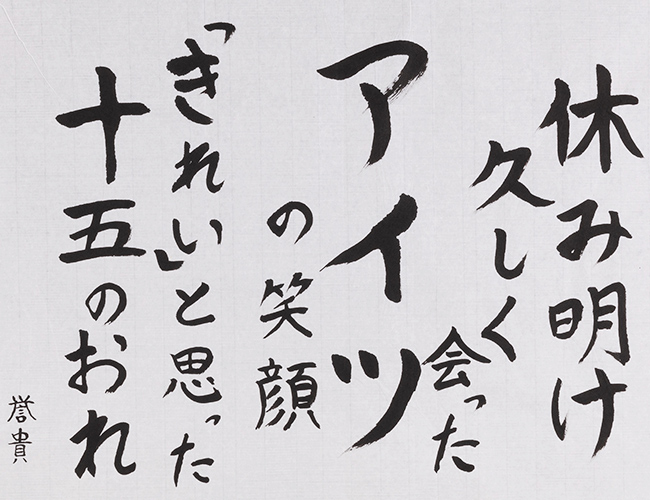 休み明け
久しく
会った
アイツ
の笑顔
「きれい」と思った
十五のおれ
誉貴